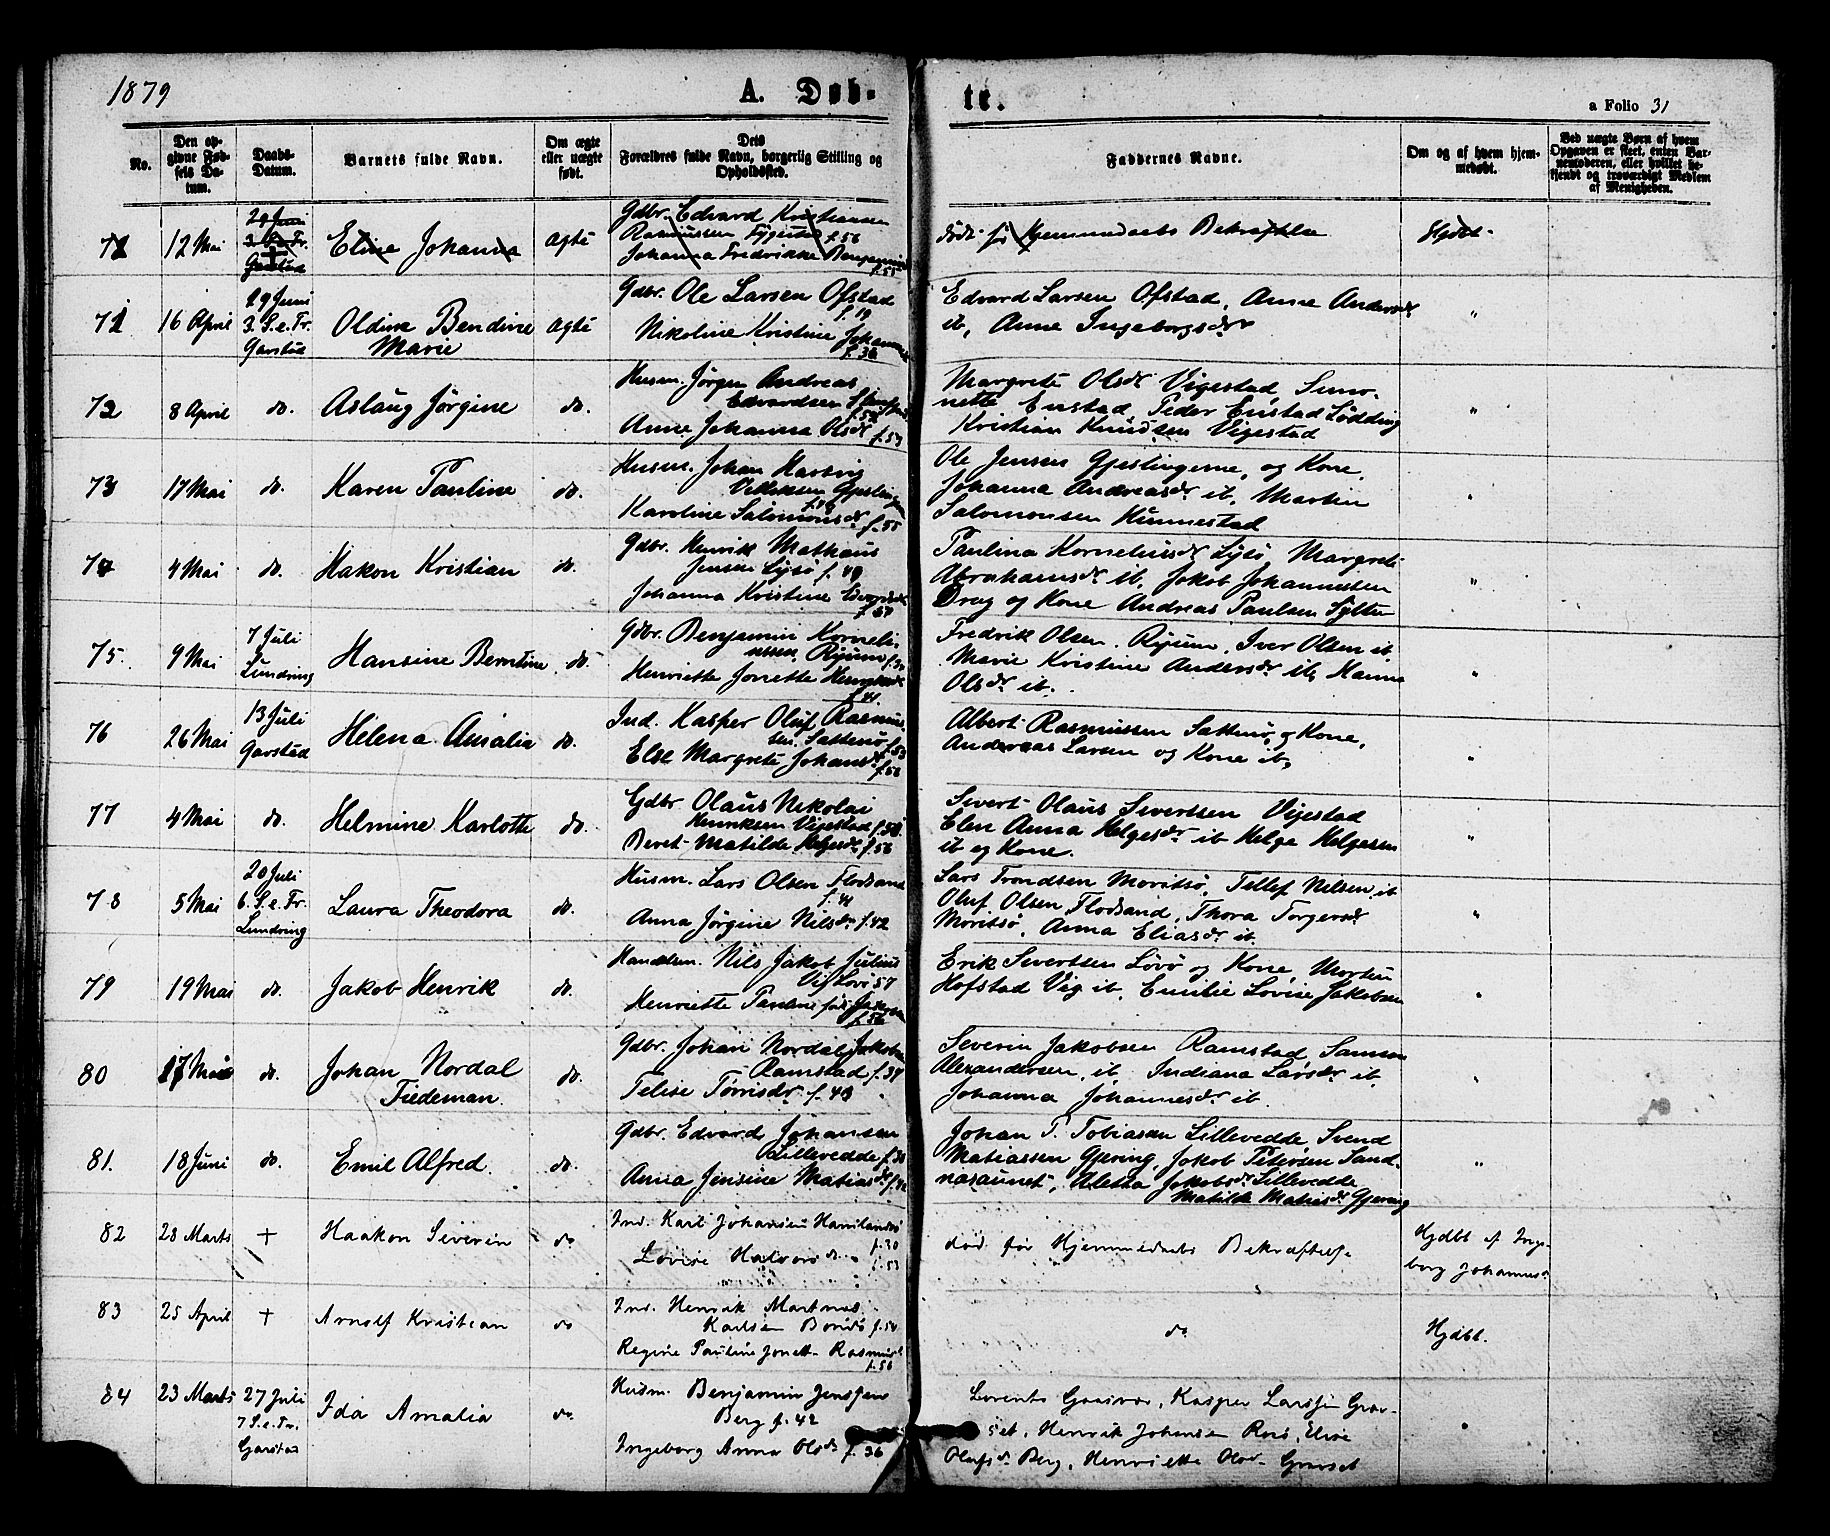 1879
A. Døb-
te.
a Folio 31
No.
Den op-
givne Fød-
sels Da-
tum.
Daabs-
Datum.
Barnets fulde Navn.
Om ægte
eller uægte
født.
Dets
Forældres fulde Navn, borgerlig Stilling og
Opholdssted.
Faddernes Navne.
Om og af hvem hjem-
medøbt.
Ved uægte Børn af hvem
Opgaven er skeet, enten Bar-
nemoderen, eller hvilket be-
kjendt og troværdigt Medlem
af Menigheden.
71
12 Mai
29 Juni
3 S. e. Tr.
Garstad
Eline Johanna
Ægte
Gdbr. Edvard Kristiansen
Rasmussen f. 56
Johanna Fredrikke f. 55
død før Hjemmedaabs Bekræftelse
Hjdbt.
71
16 April
29 Juni
3. S. e. Tr.
Garstad
Oldine Bendine
Marie
Ægte
Gdbr. Ole Larsen Ofstad
f. 19
Nikoline Kristine
f. 36
Edvard Larsen Ofstad, Anne Andersdr
ib, Anne Ingeborgsdr
"
72
8 April
do.
Aslaug Jørgine
do.
Husm. Jørgen Andreas
Edvardsen
Anne Johanna Olsdr f. 53
Margrete Olsdr Vigestad,
Enstad, Peder Enstad Lødding
Kristian Knudsen Vigestad
"
73
17 Mai
do.
Karen Pauline
do.
Husm. Johan Hartvig
Karoline Salomonsdr f. 55
Ole Jensen Gjeslingerne, og Kone,
Johanna Andreasdr ib, Martin
Salomonsen Hunnestad
"
74
4 Mai
do.
Hakon Kristian
do.
Gdbr. Henrik Mathaus
Jensen Lysø f. 49
Johanna Kristine
f. 57
Paulina Korneliusdr Lysø Margrete
Abrahamsdr ib, Jakob Johannesen
Drag og Kone Andreas Paulsen
"
75.
9 Mai
7 Juli
Lundring
Hansine Berntine
do.
Gdbr. Benjamin Korneli-
ussen, Ryum
Henriette Jonette
f. 41.
Fredrik Olsen Ryum, Iver Olsen ib,
Marie Kristine Andersdr ib, Hanna
Olsdr ib.
"
76
26 Mai
13 Juli
Garstad
Helena Amalia
do.
Ind. Kasper Oluf Rasmus-
sen Sættenø f. 53
Else Margrete Johansdr f. 56
Albert Rasmussen Sættenø, og Kone,
Andreas Larsen og Kone ib,
"
77
4 Mai
do.
Helmine Karlotte
do.
Gdbr Olaus Nikolai
Henriksen Vigestad f. 50
Beret Matilde Helgesdr f. 56
Sivert Olaus Sivertsen Vigestad
Elen Anna Helgesdr ib Helge Helgesen
ib og Kone.
"
78
5 Mai
20 Juli
6. S. e. Tr.
Lundring
Laura Theodora
do.
Husm. Lars Olsen Flodsand
f. 41
Anna Jørgine Nilsdr f. 42
Lars Trondsen Moritsø, Tellef Nilsen ib
Oluf Olsen Flodsand, Thora Torgersdr
Moritsø, Anna Eliasdr ib.
"
79
19 Mai
do.
Jakob Henrik
do.
Handlsm. Nils Jakob Julius
Henriette Pauline
f. 56
Erik Sivertsen Løvø og Kone, Morten
Hofstad Vig ib, Emilie Lovise Jakobsen
"
80
17 Mai
do.
Johan Nordal
Tiedeman.
do.
Gdbr. Johan Nordal Jakobsen
Ramstad f. 34
Telise Tørrisdr f. 40
Severin Jakobsen Ramstad, Samson
Alexandersen, ib Indiana Larsdr ib,
Johanna Johannesdr ib.
"
81.
18 Juni
do.
Emil Alfred.
do.
Gdbr. Edvard Johansen
Lillevedde
Anna Jensine Matiasdr f. 42
Johan T. Tobiasen Lillevedde Svend
Matiassen Gjering, Jakob Petersen Sand-
nasaunet, Aletta Jakobsdr Lillevedde
Matilde Matiasdr Gjering
"
82
28 Marts
+
Haakon Siverin
do
Ind. Karl Johansen
f. 30
Lovise
f. 53
død før Hjemmedaabs Bekræftelse
Hjdbt af Inge-
borg Johannesdr
83
25 April
+
Arnolf Kristian
do
Ind. Henrik
Karlsen f. 54
Regine Pauline Jonett. Rasmusd
f. 56
do
Hjdbt.
84
23 Marts
27 Juli
7 S. e. Tr.
Garstad
Ida Amalia
do.
Husm. Benjamin Jenssen
Berg f. 42
Ingeborg Anna Olsdr f. 36
Lorents Kasper Larssen
Henrik Johansen Elise
Olufsdr Berg, Henriette
"